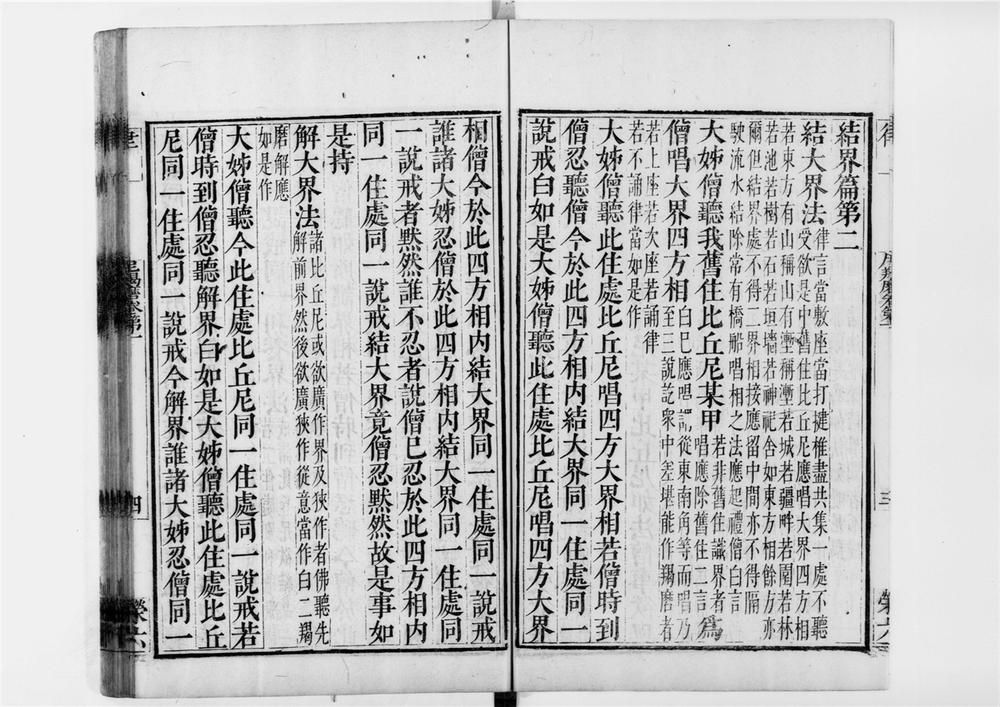 律
尼羯磨卷第一
三
榮六
結界篇第二
結大界法
律言當敷座當打揵椎盡共集一處不聽
受欲是中舊住比丘尼應唱大界四方相
若東方有山稱山有壍稱壍若城若疆畔若園若林
若池若樹若石若垣墻若神祀舍如東方相餘方亦
爾但結界處不得二界相接應留中間亦不得隔
駛流水結除常有橋船唱相之法應起禮僧白言
大姊僧聽我舊住比丘尼某甲
若非舊住讖界者
唱應除舊住二言
爲
僧唱大界四方相
白巳應唱詞從東南角等而唱乃
至三說訖衆中差堪能作羯磨者
若上座若次座若誦律
若不誦律當如是作
大姊僧聽此住處比丘尼唱四方大界相若僧時到
僧忍聽僧今於此四方相内結大界同一住處同一
說戒白如是大姊僧聽此住處比丘尼唱四方大界
相僧今於此四方相内結大界同一住處同一說戒
誰諸大姊忍僧於此四方相内結大界同一住處同
一說戒者默然誰不忍者說僧巳忍於此四方相内
同一住處同一說戒結大界竟僧忍默然故是事如
是持
解大界法
諸比丘尼或欲廣作界及狹作者佛聽先
解前界然後欲廣狹作從意當作白二羯
磨解應
如是作
大姊僧聽今此住處比丘尼同一住處同一說戒若
僧時到僧忍聽解界白如是大姊僧聽此住處比丘
尼同一住處同一說戒今解界誰諸大姊忍僧同一
律一
尼羯磨卷第一
四
榮六